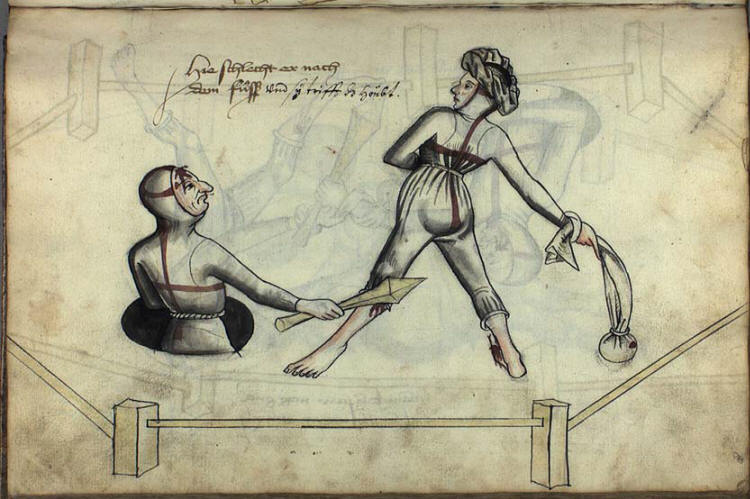 Hie schlecht er nach
dem füss und sÿ trifft dz höubt.